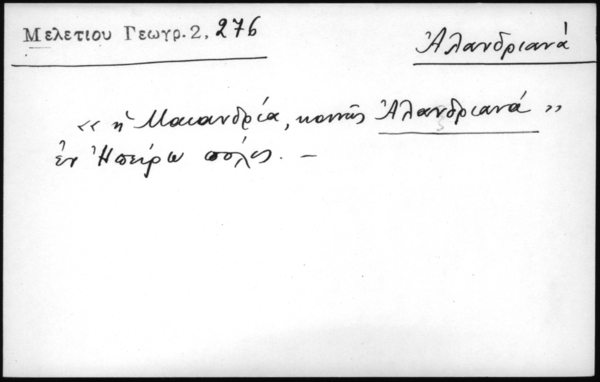 Μελετίου Γεωγρ. 2, 276
Ἀλανδριανά
« ἡ Μαιανδρία, κοινῶς Ἀλανδριανά »
ἐν Ἠπείρῳ πόλις. –